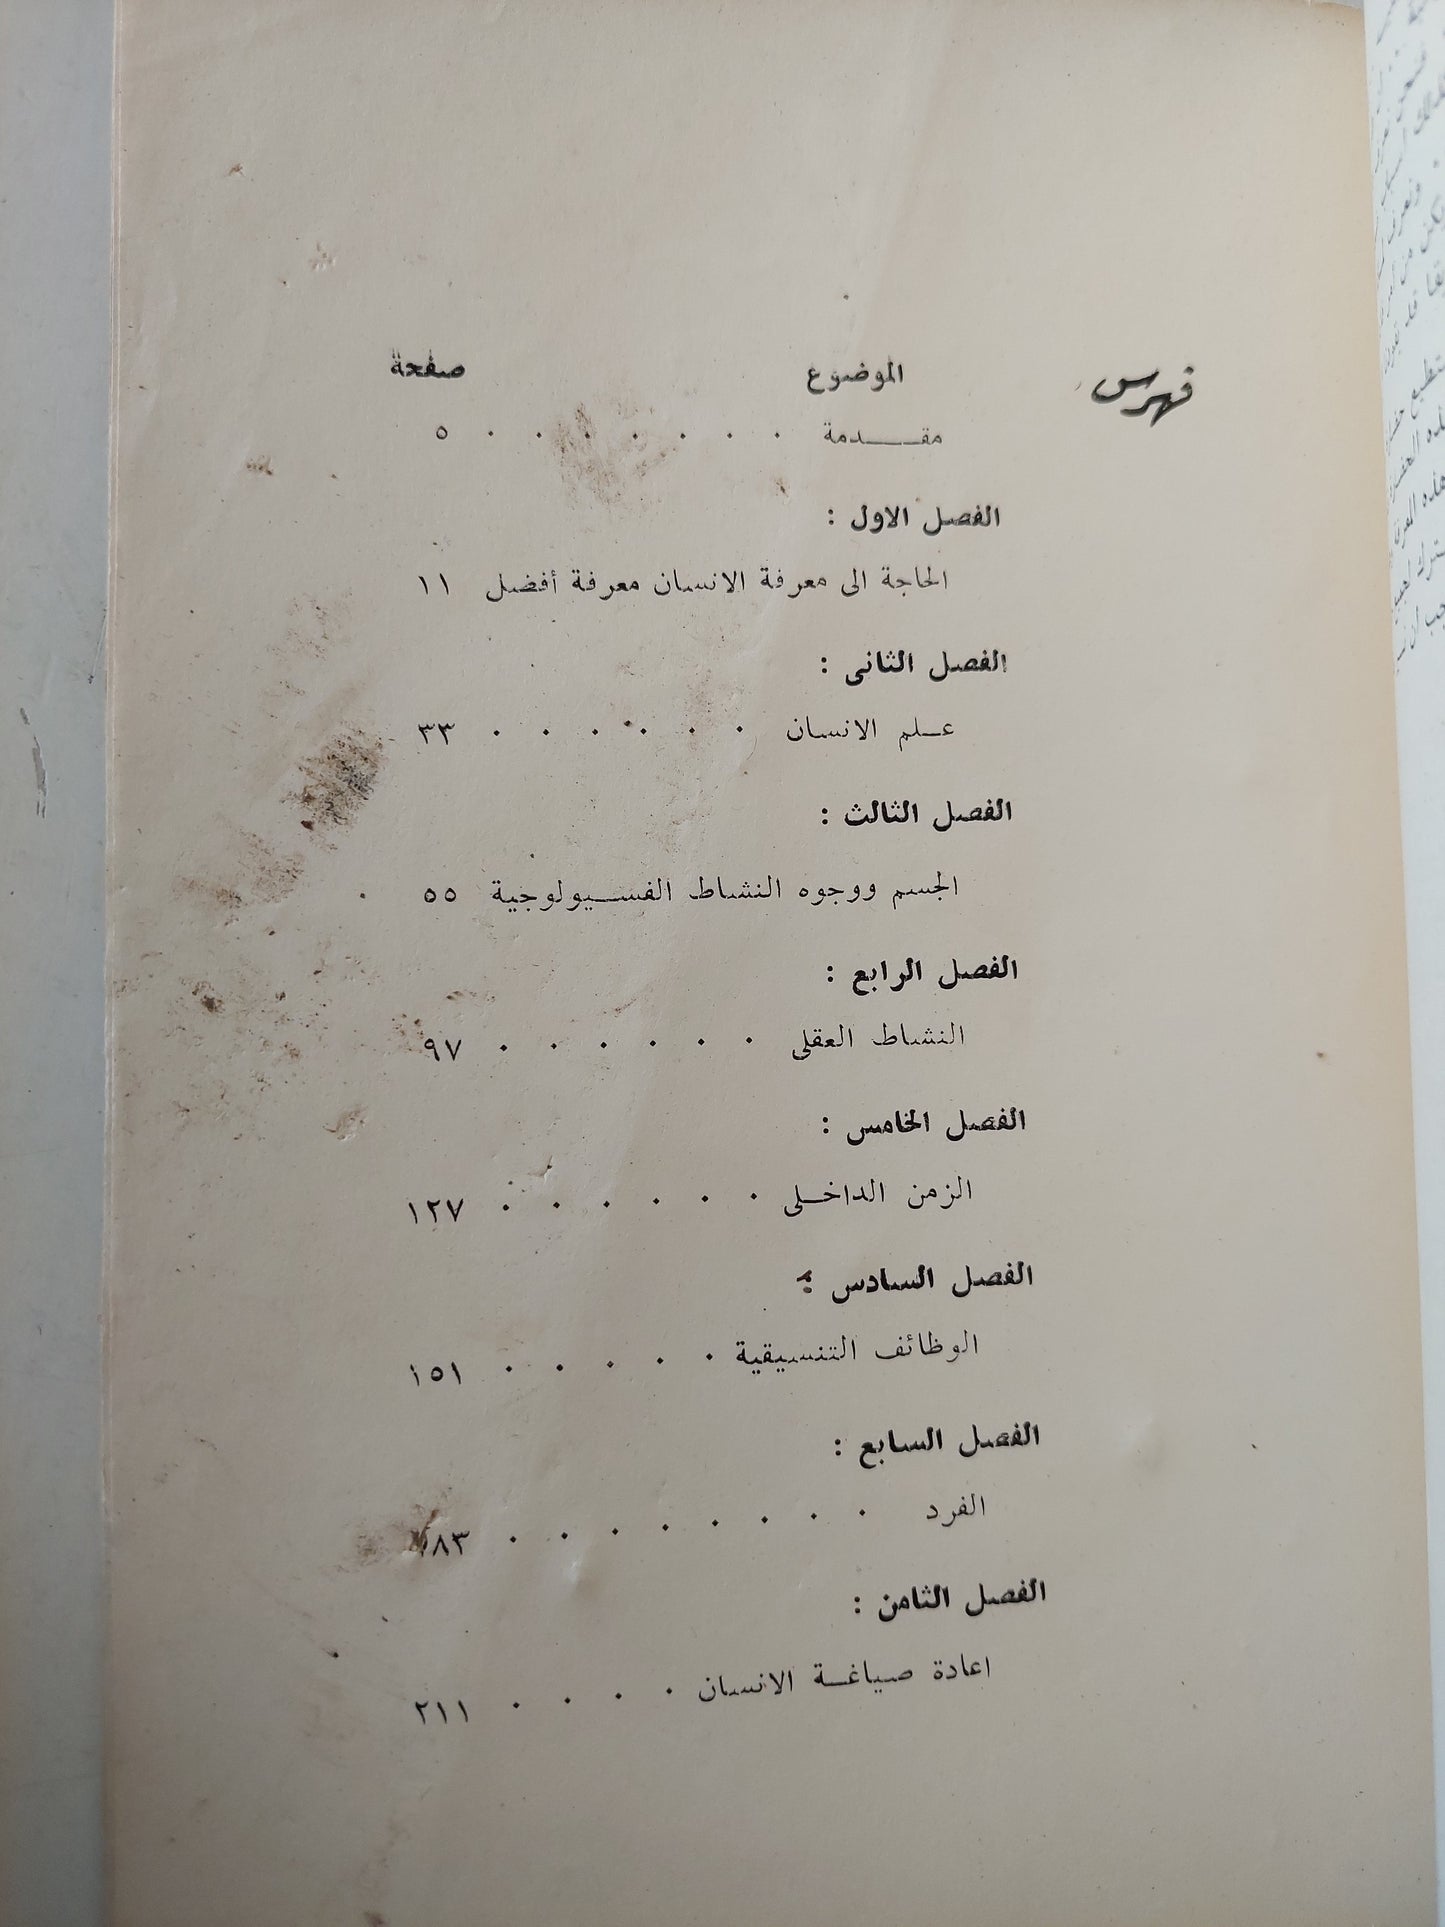 فهرس
الموضوع صفحة
مقـــدمة . . . . . . . ٥
الفصل الاول :
الحاجة الى معرفة الانسان معرفة أفضل ١١
الفصل الثانى :
عـلم الانسان . . . . . . ٣٣
الفصل الثالث :
الجسم ووجوه النشاط الفســيولوجية ٥٥
الفصل الرابع :
النشاط العقلى . . . . . . ٩٧
الفصل الخامس :
الزمن الداخـلى . . . . . . ١٢٧
الفصل السادس :
الوظائف التنسيقية . . . . . ١٥١
الفصل السابع :
الفرد . . . . . . . . ١٨٣
الفصل الثامن :
اعادة صياغـة الانسان . . . . ٢١١